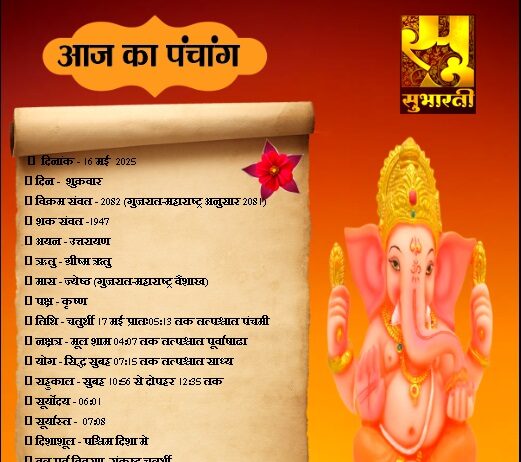 आज का पंचांग
सुभारती
दिनाक - 16 मई 2025
दिन - शुक्रवार
विक्रम संवत - 2082 (गुजरात-महाराष्ट्र अनुसार 2081)
शक संवत -1947
अयन - उत्तरायण
ऋतु - ग्रीष्म ऋतु
मास - ज्येष्ठ (गुजरात-महाराष्ट्र वैशाख)
पक्ष - कृष्ण
तिथि - चतुर्थी 17 मई प्रातः05:13 तक तत्पश्चात पंचमी
नक्षत्र - मूल शाम 04:07 तक तत्पश्चात पूर्वाषाढा
योग - सिद्ध सुबह 07:15 तक तत्पश्चात साध्य
राहुकाल - सुबह 10:56 से दोपहर 12:35 तक
सूर्योदय - 06:01
सूर्यास्त - 07:08
दिशाशूल - पश्चिम दिशा मे